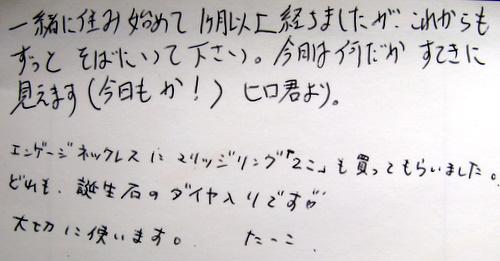 一緒に住み始めて1ヶ月以上経ちましたが、これからも
ずっとそばにいて下さい。今日は何だかすてきに
見えます(今日もか!)ヒロ君より。
エンゲージネックレスにマリッジリング「2こ」も買ってもらいました。
どれも、誕生石のダイヤ入りですが
大切に使います。 たーこ